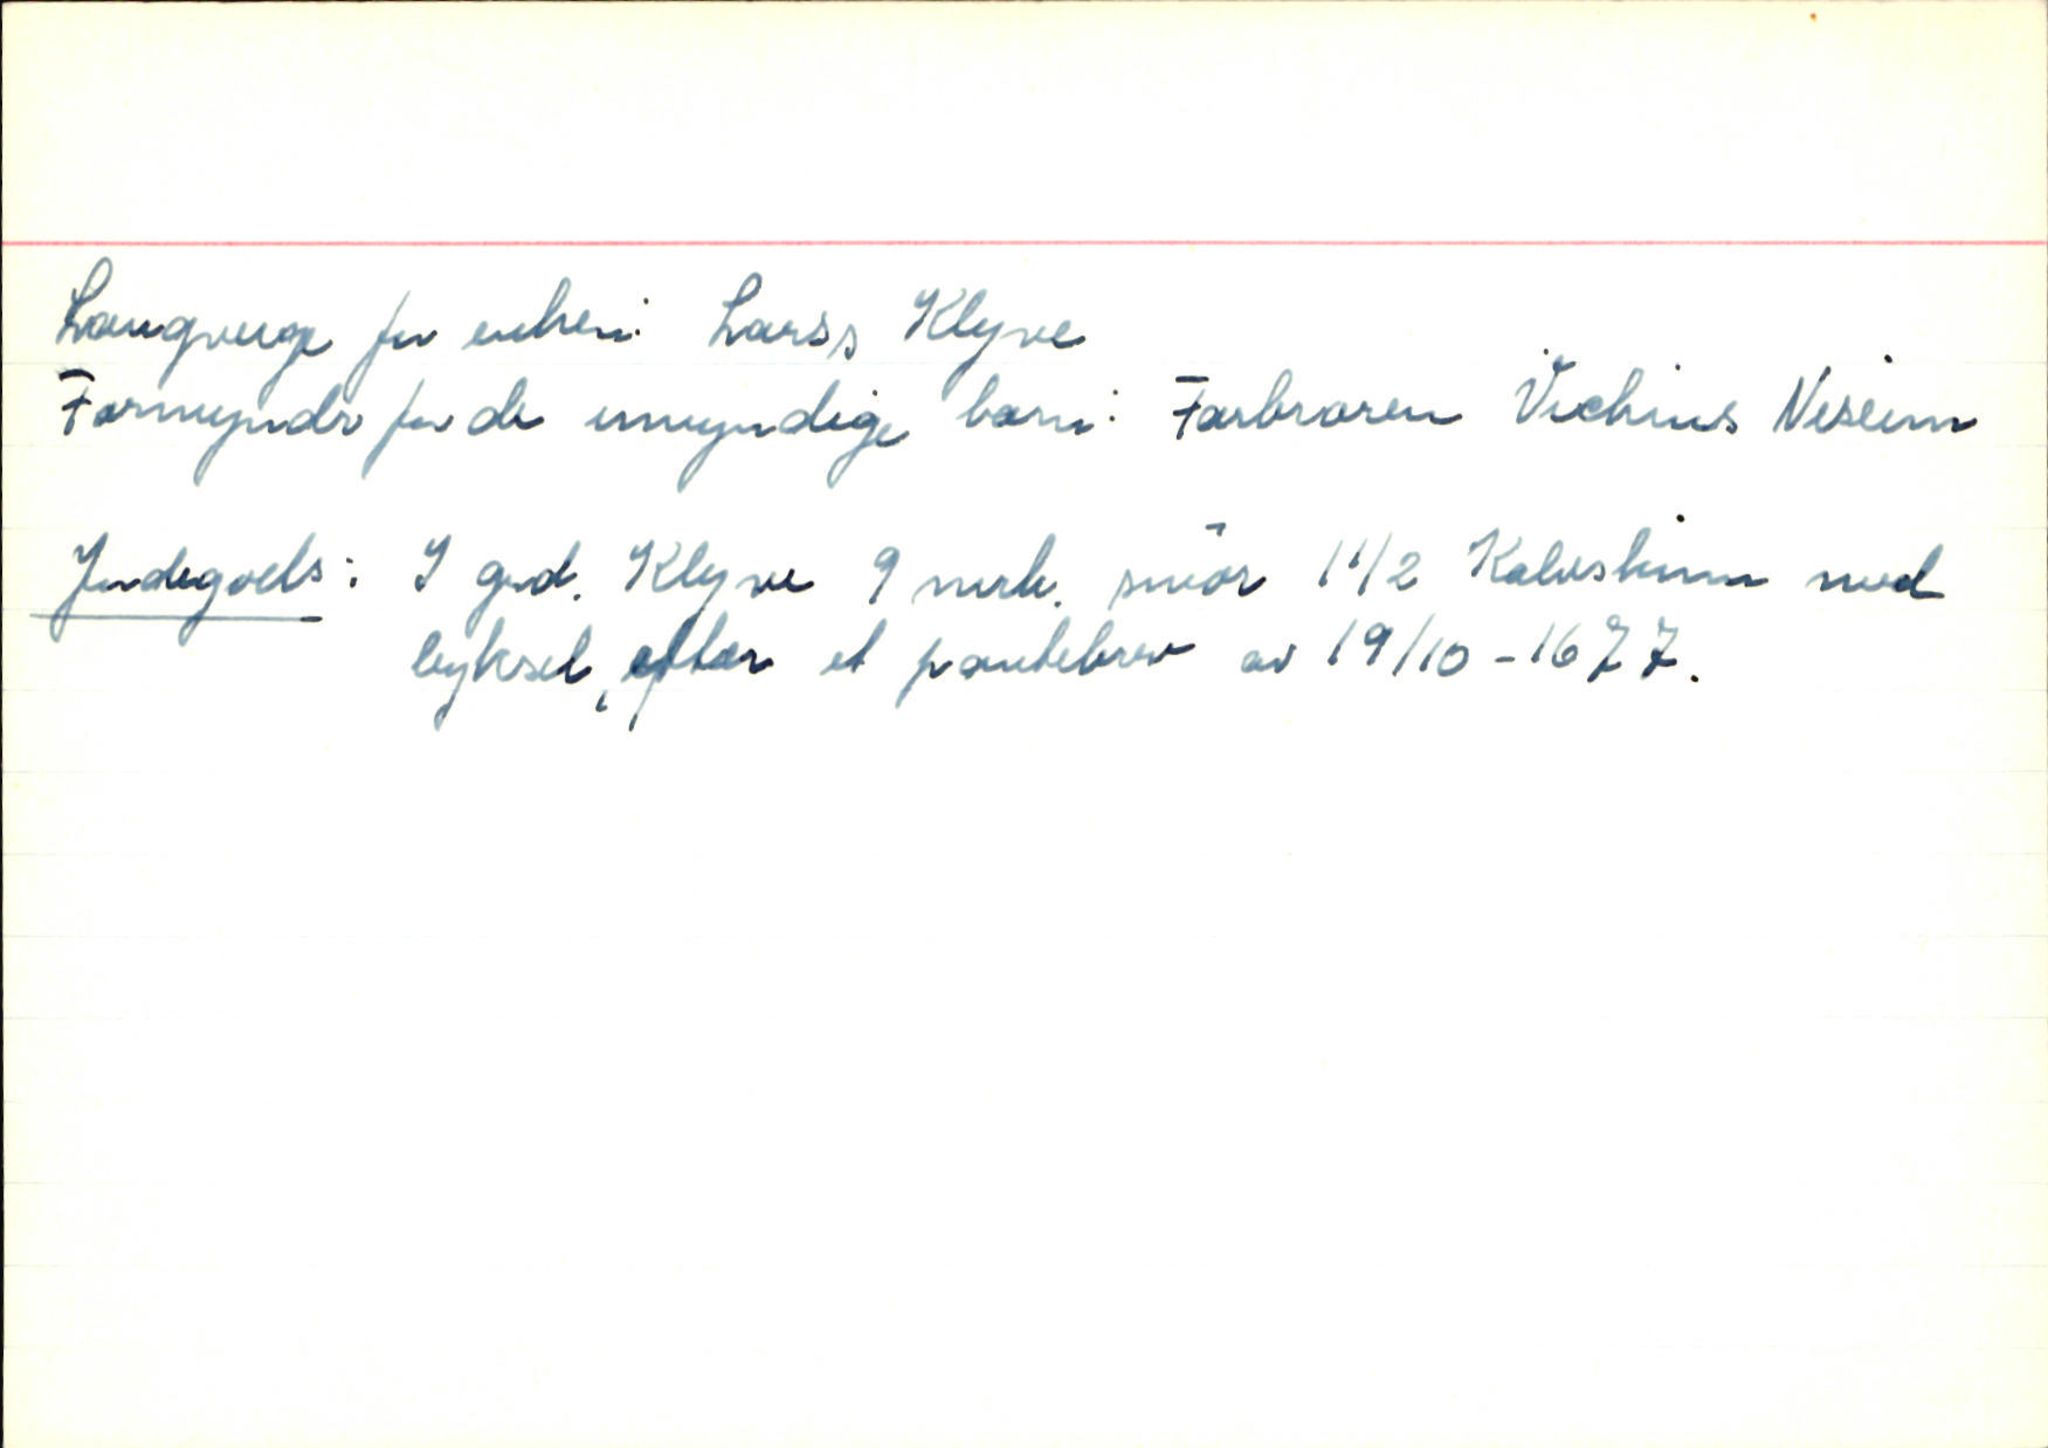 Laugverge for enken: Larss Klyve
Formyndr for de umyndige born: Farbroren Vichins Neseim
Jordegods: I grd. Klyve 9 mrk. smör 1 1/2 Kalvskinn med
byksel, efter et pantebrev av 19/10 - 1677.